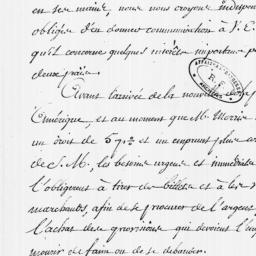 en ses mains, nous nous croyons indispen
obligés d'en donner communication à V. E.
qu'il concerne quelques intérêts importans p
deux païs.
Avant l'arrivée de la nouvelle
Amérique, et au moment que M. Morris
un droit de 5 et un emprunt plus
de S. M., les besoins urgens et immédiats
l'obligeant à tirer des billets et à les
marchands, afin de se procurer de l'argent
l'achat des provisions qui devoient l'em
mourir de faim ou de se debander.